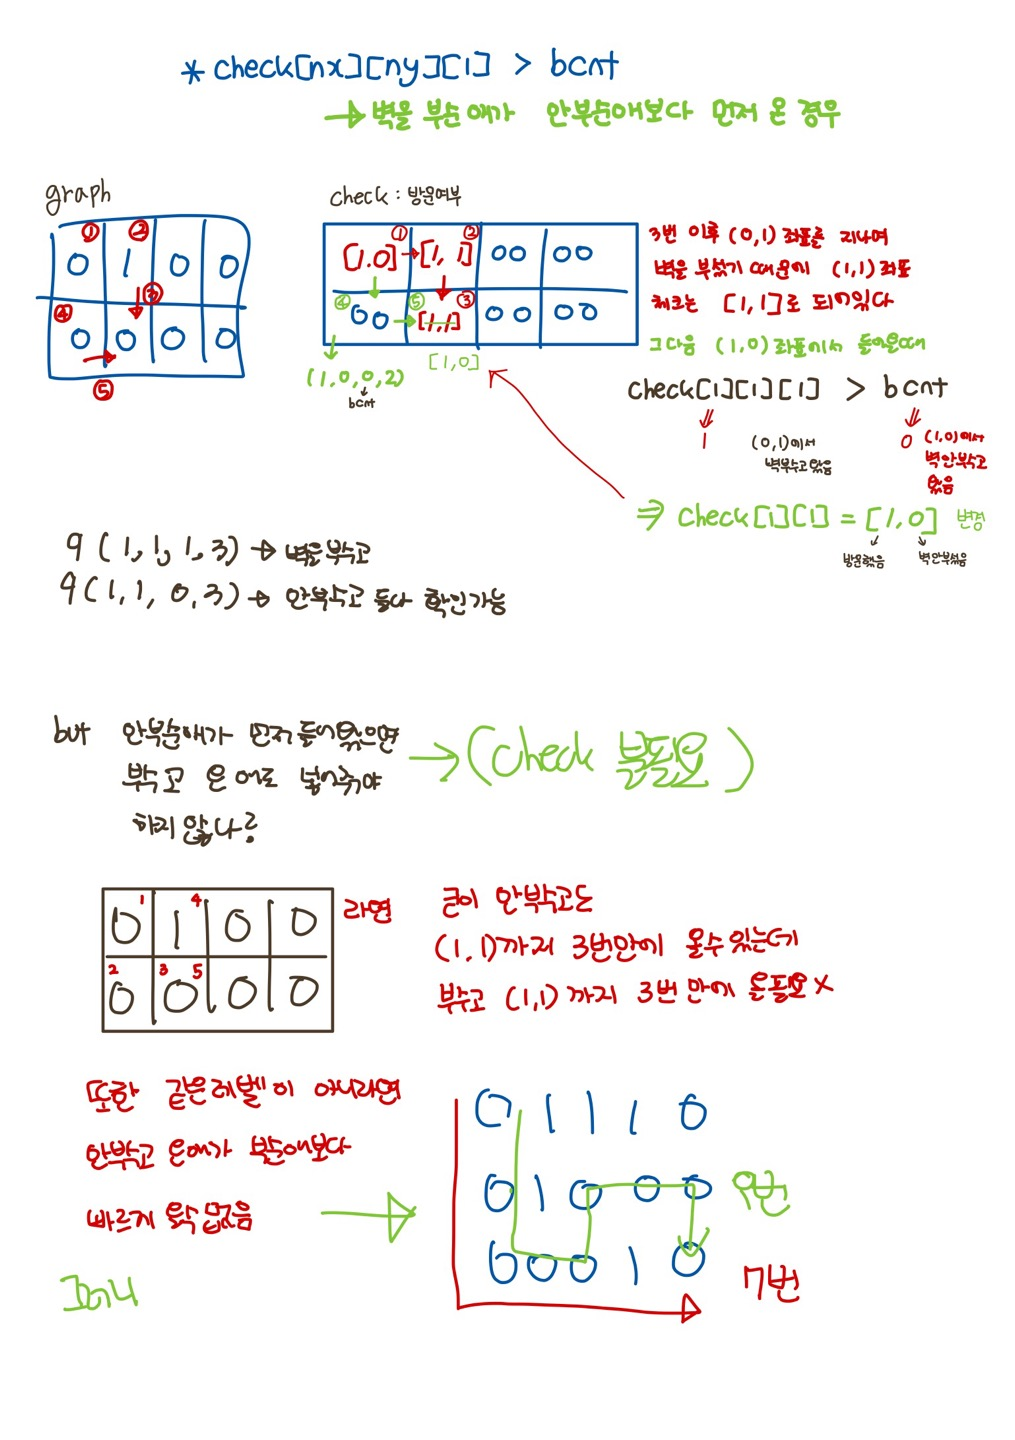 * check[nx][ny][1] > bcnt
→ 벽을 부순 애가 안부순애보다 먼저 온 경우
graph
① ②
0 1 0 0
④ ③
0 0 0 0
⑤
check : 방문여부
① ②
[1.0] → [1, 1] 00 00
④ ⑤ ③
00 → [1,1] 00 00
(1,0,0,2)
bcnt
[1,0]
3번 이후 (0,1) 좌표를 지나며
벽을 부쉈기 때문에 (1,1) 좌표
체크는 [1,1]로 되어있다
그다음 (1,0) 좌표에서 들어올때
check[1][1][1] > bcnt
1 (0,1)에서 벽부수고 왔음
0 (1,0)에서 벽안부수고 왔음
⇒ check[1][1] = [1,0] 변경
방문했음 벽안부쉈음
q (1,1,1,3) → 벽을부수고
q(1,1,0,3) → 안부수고 둘다 확인가능
but 안부순애가 먼저들어왔으면
부수고 온 애도 넣어줘야
하지 않나?
→ (check 불필요)
1 4
0 1 0 0
2 3 5
0 0 0 0
라면
굳이 안부수고도
(1,1)까지 3번만에 올수있는데
부수고 (1,1)까지 3번만에 올필요 X
또한 같은레벨이 아니라면
안부수고 온애가 부순애보다
빠르게 올수 없음
→
0 1 1 1 0
0 1 0 0 0 9번
0 0 0 1 0
7번